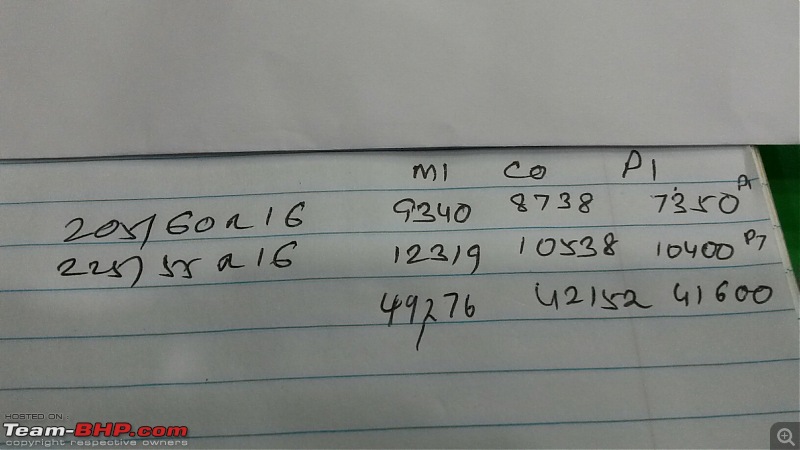 MI CO PI
205/60R16 9340 8738 7350 P1
225/55R16 12319 10538 10400 P7
49276 42152 41600
HOSTED ON :
Team-BHP.com
copyright respective owners